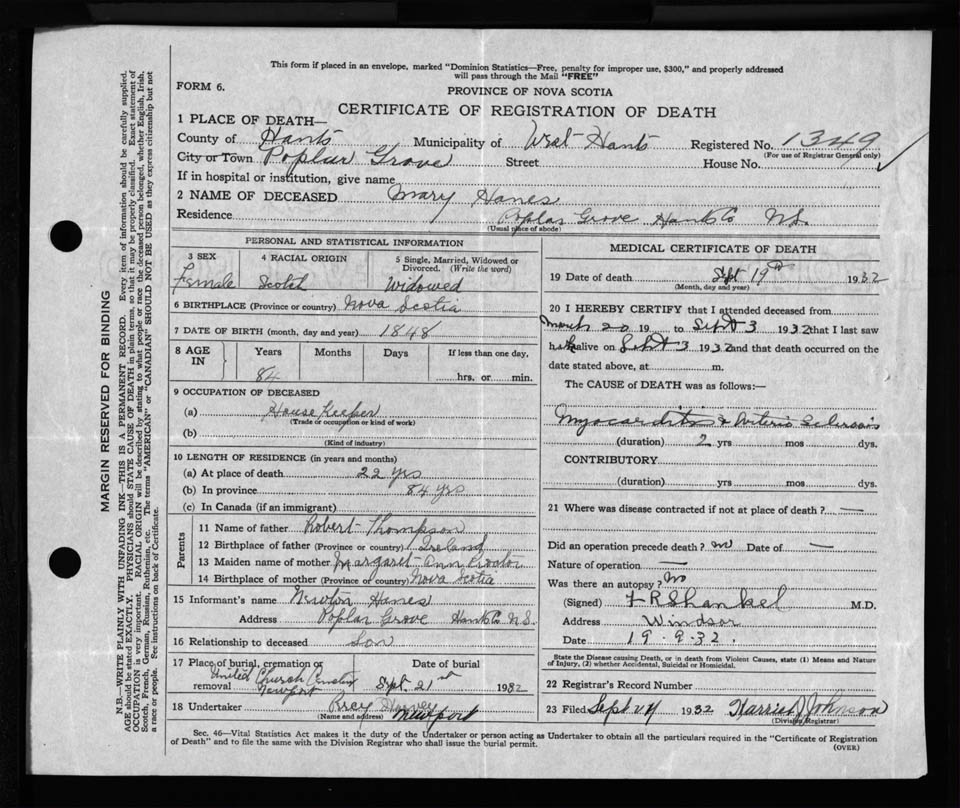 This form if placed in an envelope, marked "Dominion Statistics—Free, penalty for improper use, $300," and properly addressed
will pass through the Mail "FREE"
FORM 6.
PROVINCE OF NOVA SCOTIA
CERTIFICATE OF REGISTRATION OF DEATH
1 PLACE OF DEATH—
County of Hants Municipality of West Hants Registered No. 1349
(For use of Registrar General only)
City or Town Poplar Grove Street House No.
If in hospital or institution, give name
2 NAME OF DECEASED Mary Hanes
Residence Poplar Grove Hants Co N.S.
(Usual place of abode)
PERSONAL AND STATISTICAL INFORMATION
3 SEX 4 RACIAL ORIGIN 5 Single, Married, Widowed or Divorced. (Write the word)
Female Scotch Widowed
6 BIRTHPLACE (Province or country) Nova Scotia
7 DATE OF BIRTH (month, day and year) 1848
8 AGE IN Years Months Days If less than one day,
84 hrs. or min.
9 OCCUPATION OF DECEASED
(a) House Keeper
(Trade or occupation or kind of work)
(b)
(Kind of industry)
10 LENGTH OF RESIDENCE (in years and months)
(a) At place of death 22 yrs
(b) In province 84 yrs
(c) In Canada (if an immigrant)
Parents
11 Name of father Robert Thompson
12 Birthplace of father (Province or country) Ireland
13 Maiden name of mother Margaret Ann
14 Birthplace of mother (Province or country) Nova Scotia
15 Informant's name Newton Hanes
Address Poplar Grove Hants Co N.S.
16 Relationship to deceased Son
17 Place of burial, cremation or removal Date of burial
United Church
Newport Sept. 21st 1932
18 Undertaker Percy Harvey
(Name and address) Newport
MEDICAL CERTIFICATE OF DEATH
19 Date of death Sept 19th 1932
(Month, day and year)
20 I HEREBY CERTIFY that I attended deceased from
March 20 19 to Sept 3 1932 that I last saw
h alive on Sept 3 1932 and that death occurred on the
date stated above, at m.
The CAUSE of DEATH was as follows:—
Myocarditis & Arterio Sclerosis
(duration) 2 yrs mos dys.
CONTRIBUTORY
(duration) yrs mos dys.
21 Where was disease contracted if not at place of death? —
Did an operation precede death? no Date of —
Nature of operation —
Was there an autopsy? No
(Signed) F R Shankel M.D.
Address Windsor
Date 19.9.32.
State the Disease causing Death, or in death from Violent Causes, state (1) Means and Nature
of Injury, (2) whether Accidental, Suicidal or Homicidal.
22 Registrar's Record Number
23 Filed Sept 24 1932 Harriet J Johnson
(Division Registrar)
Sec. 46—Vital Statistics Act makes it the duty of the Undertaker or person acting as Undertaker to obtain all the particulars required in the "Certificate of Registration
of Death" and to file the same with the Division Registrar who shall issue the burial permit.
(OVER)
MARGIN RESERVED FOR BINDING
N.B.—WRITE PLAINLY WITH UNFADING INK—THIS IS A PERMANENT RECORD. Every item of information should be carefully supplied.
AGE should be stated EXACTLY. PHYSICIANS should STATE CAUSE OF DEATH in plain terms, so that it may be properly classified. Exact statement of
OCCUPATION is very important. RACIAL ORIGIN will be described by stating to what people or race the deceased person belonged, whether English, Irish,
Scotch, French, German, Russian, Ruthenian, etc. The terms "AMERICAN" or "CANADIAN" SHOULD NOT BE USED as they express citizenship but not
a race or people. See instructions on back of Certificate.